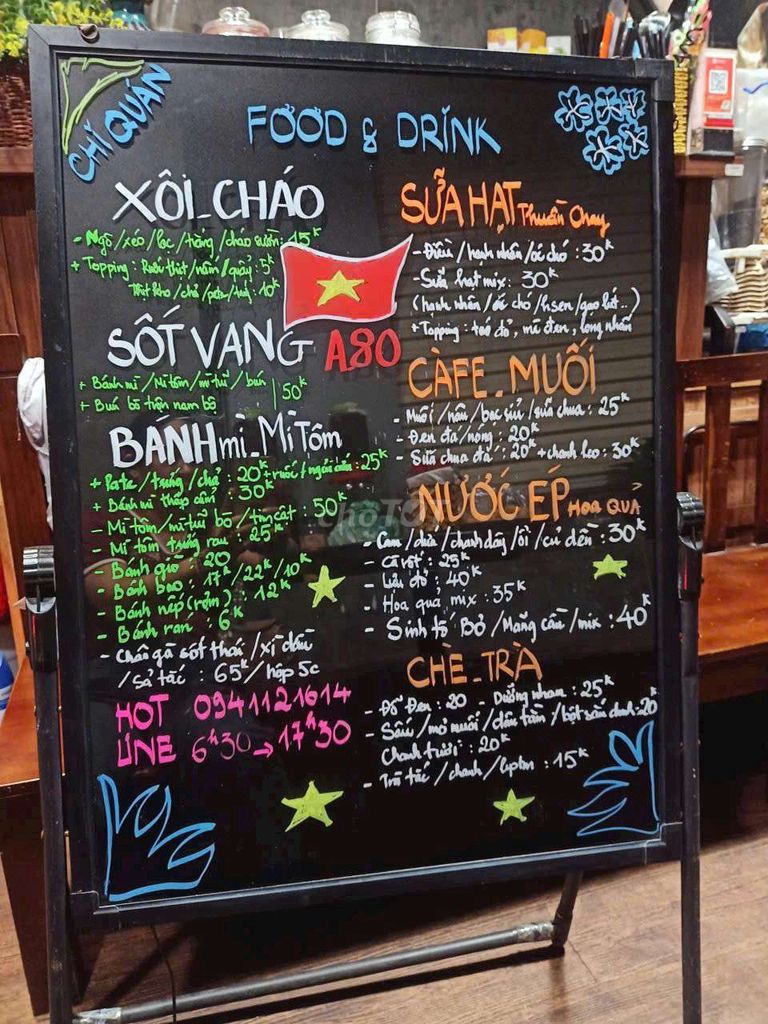 CHÍ QUÁN
FOOD & DRINK
XÔI_CHÁO
- Ngô/xéo/lạc/trắng/cháo sườn: 15K
+ Topping: Ruốc thịt/nấm/quẩy: 5K
Thịt kho/chả/pate/ : 10K
SỐT VANG A80
+ Bánh mì/Mì tôm/mì tuỉ/bún
+ Bún bò trộn nam bộ
50K
BÁNH mì_Mì Tôm
+ Pate/trứng/chả: 20K + ruốc + ngải cứu: 25K
+ Bánh mì thập cẩm: 30K
- Mì tôm/mì tuỉ bò/tim cật: 50K
- Mì tôm trứng rau: 25K
- Bánh giò: 20
- Bánh bao: 17K/22K/10K
- Bánh nếp (rợm): 12K
- Bánh rán: 6K
- Chân gà sốt thái/xì dầu
/sả tắc: 65K/hộp 5c
HOT 0941121614
LINE 6h30 → 17h30
SỮA HẠT Thuần Chay
- Điều/hạnh nhân/óc chó: 30K
- Sữa hạt mix: 30K
(hạnh nhân/óc chó/h.sen/gạo lứt..)
+ Topping: táo đỏ, mè đen, long nhãn
CÀFE_MUỐI
- Muối/nâu/bạc sỉu/sữa chua: 25K
- Đen đá/nóng: 20K
- Sữa chua đá: 20K + chanh leo: 30K
NƯỚC ÉP HOA QUẢ
- Cam/dứa/chanh dây/ổi/củ dền: 30K
- Cà rốt: 25K
- Lựu đỏ: 40K
- Hoa quả mix: 35K
- Sinh tố Bơ/Mãng cầu/mix: 40K
CHÈ_TRÀ
- Đỗ Đen: 20 - Dưỡng nhan: 25K
- Sấu/mơ muối/dâu tằm/bột sắn dây: 20K
Chanh tươi: 20K
- Trà tắc/chanh/lipton: 15K
chợTỐT